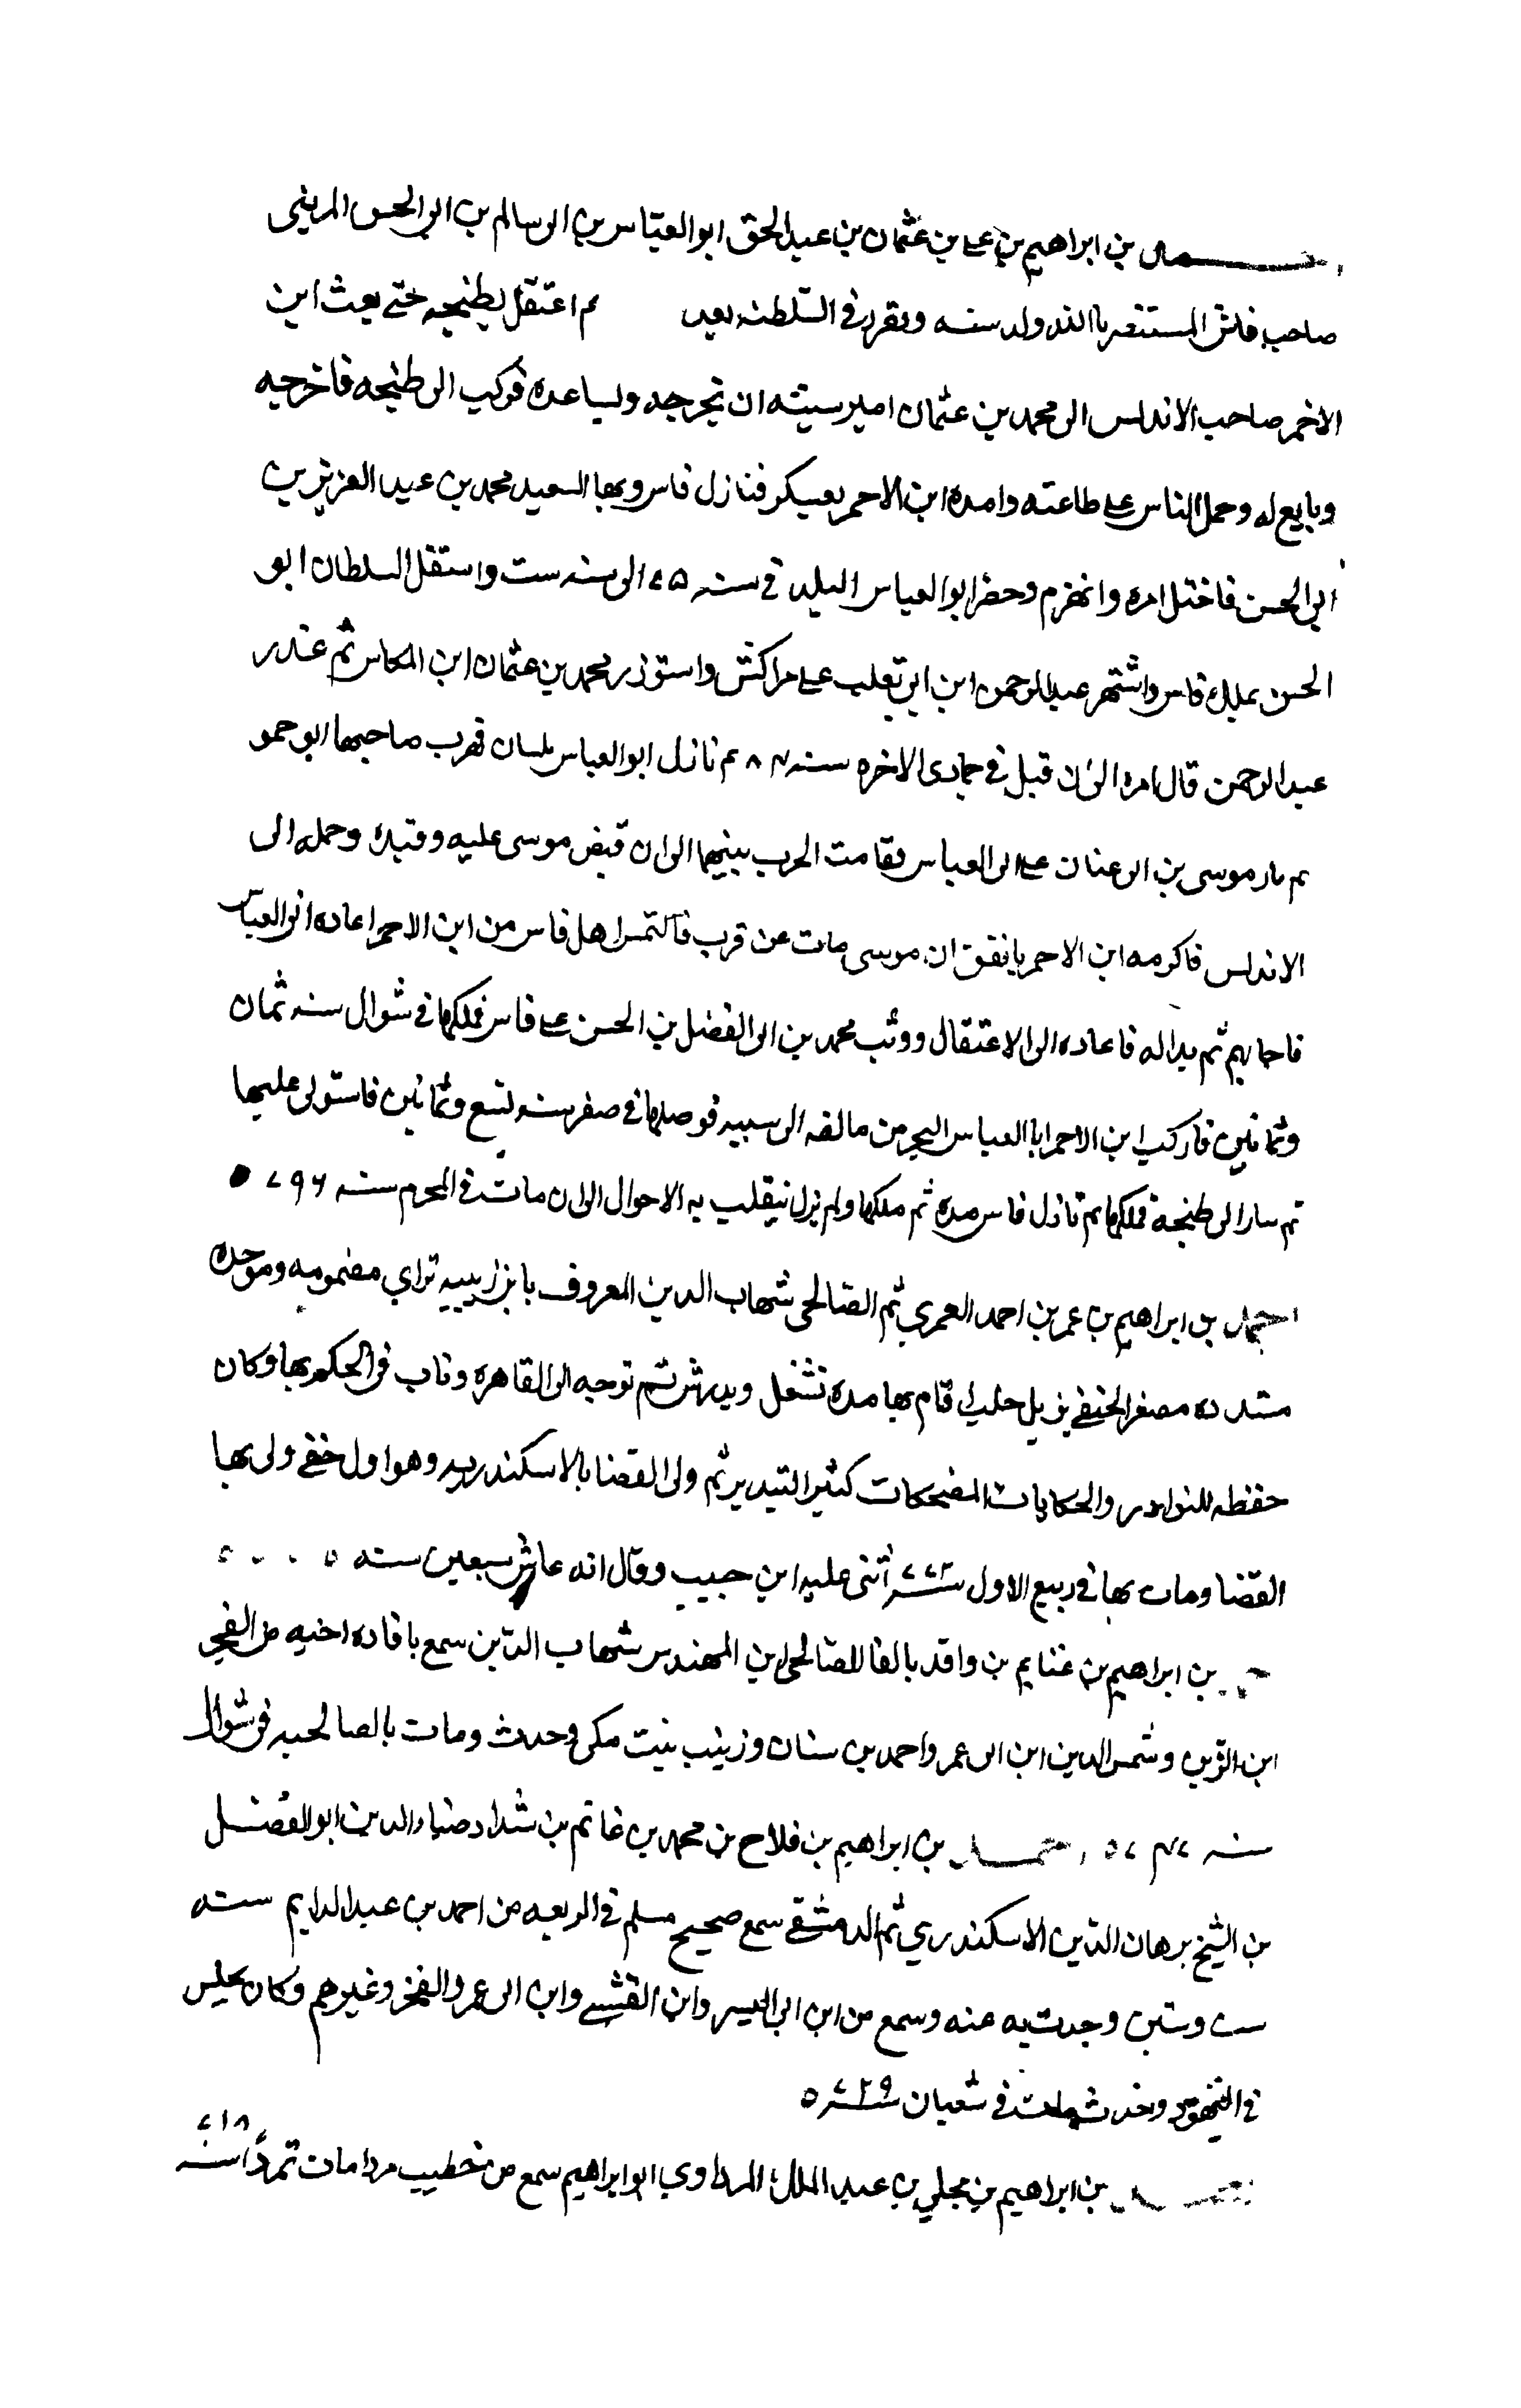 احمد بن ابراهيم بن على بن عثمان بن عبد الحق ابو العباس بن ابى سالم بن ابى الحسن المرينى
صاحب فاس المستنصر بالله ولد سنه وتقرر فى السلطنه بعد ثم اعتقل بطنجه حتى بعث ابن
الاحمر صاحب الاندلس الى محمد بن عثمان امير سبته ان يخرجه ويساعده فركب الى طنجه فاخرجه
وبايع له وحمل الناس على طاعته وامده ابن الاحمر بعسكر فنازل فاس وبها السعيد محمد بن عبد العزيز بن
ابى الحسن فاختل امره وانهزم وحضر ابو العباس البلد فى سنه ٧٥ الى سنه ست واستقل السلطان ابو
الحسن بملك فاس واشتهر عبد الرحمن ابن ابى تغلب على مراكش واستوزر محمد بن عثمان ابن الكاس ثم غدر
عبد الرحمن قال امره الى ان قبل فى جمادى الاخره سنه ٨٤ ثم نازل ابو العباس تلمسان فهرب صاحبها ابو حمو
ثم ثار موسى بن ابى عنان على ابى العباس فقامت الحرب بينهما الى ان قبض موسى عليه وقيده وحمله الى
الاندلس فاكرمه ابن الاحمر فاتفق ان موسى مات عن قرب فالتمس اهل فاس من ابن الاحمر اعاده ابى العباس
فاجابهم ثم بدا له فاعاده الى الاعتقال ووثب محمد بن ابى الفضل بن الحسن على فاس فملكها فى شوال سنه ثمان
وثمانين فاركب ابن الاحمر ابا العباس البحر من مالقه الى سبته فوصلها فى صفر سنه تسع وثمانين فاستولى عليها
ثم سار الى طنجة فملكها ثم نازل فاس مدة ثم ملكها ولم يزل تتقلب به الاحوال الى ان مات فى المحرم سنه ٧٩٦
احمد بن ابراهيم بن عمر بن احمد العمري ثم الصالحى شهاب الدين المعروف بابن زبيبه بزاي مضمومه وموحده
مشدده مصغر الحنفى نزيل حلب اقام بها مده تشغل ويدرس ثم توجه الى القاهره وناب فى الحكم بها وكان
حفظه للنوادر والحكايات المضحكات كثير التبذير ثم ولى القضا بالاسكندريه وهو اول حنفى ولى بها
القضا ومات بها فى ربيع الاول سنه ٧٧٣ اثنى عليه ابن حبيب وقال انه عاش سبعين سنه
احمد بن ابراهيم بن غنايم بن واقد الصالحى ابن المهندس شهاب الدين سمع بافاده اخيه من الفخر
ابن الزين وشمس الدين ابن ابى عمر واحمد بن سنان وزينب بنت مكى وحدث ومات بالصالحيه فى شوال
سنه ٧٤٧ احمد بن ابراهيم بن فلاح بن محمد بن غانم بن شداد ضياء الدين ابو الفضل
بن الشيخ برهان الدين الاسكندري ثم الدمشقى سمع صحيح مسلم فى الربعه من احمد بن عبد الدايم سنه
ست وستين وحدث به عنه وسمع من ابن ابى اليسر وابن ابى عمر والفخر وغيرهم وكان يجلس
فى الشهود وحدث ومات فى شعبان سنه ٧٢٩
احمد بن ابراهيم بن مجلي بن عبد الملك المرداوي ابو ابراهيم سمع من خطيب مردا مات بمردا سنه ٧١٨